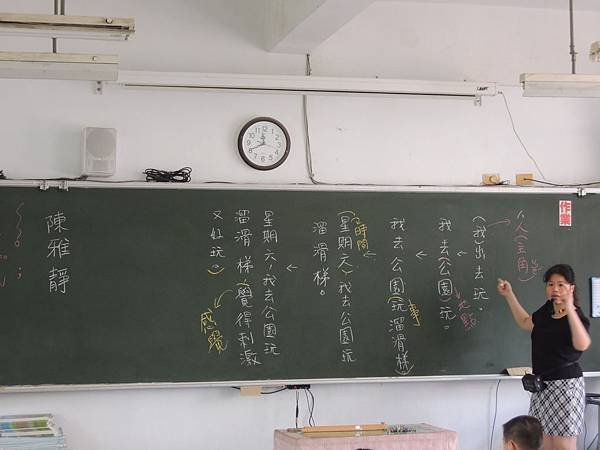 作業
人(主角)
(我)出去玩。
我去(公園)。
地點
我去公園(玩溜滑梯)
事
時間
(星期六)我去公園玩
溜滑梯。
星期六,我去公園玩
溜滑梯,(覺得刺激
又好玩。)
感覺
陳雅靜